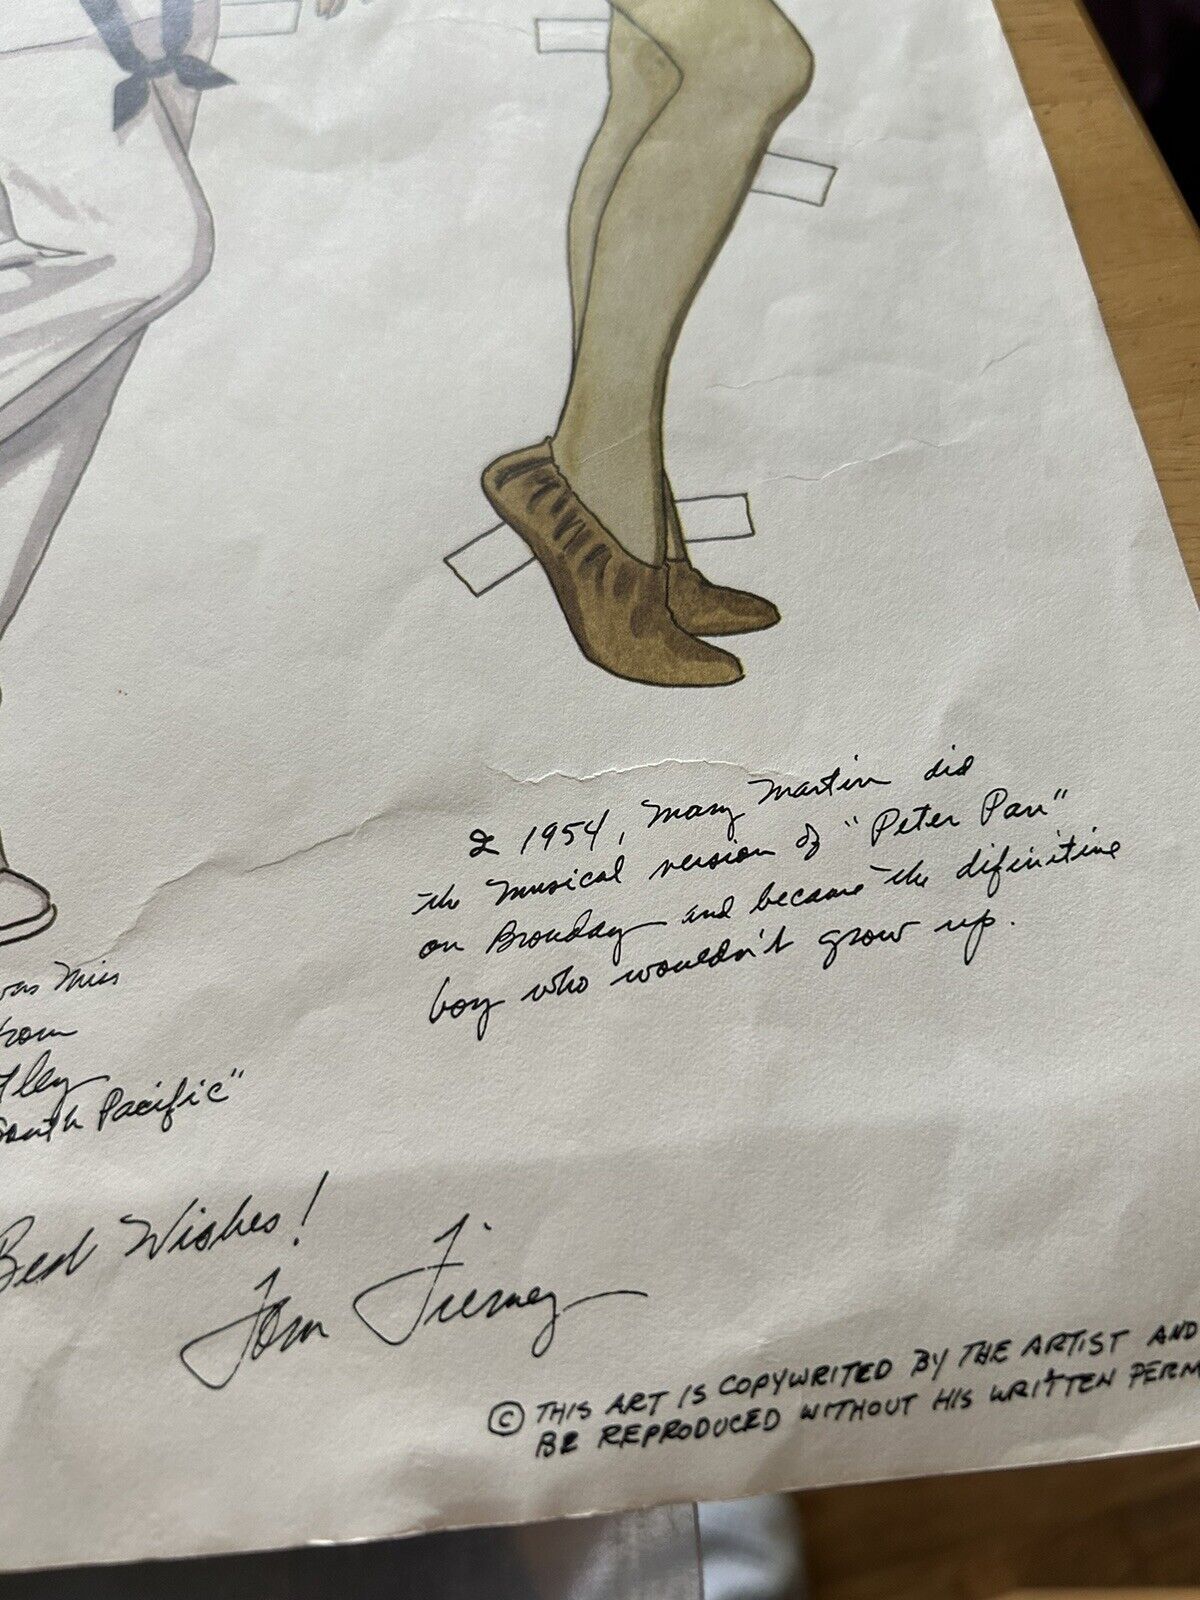 In 1954, Mary Martin did
the musical version of "Peter Pan"
on Broadway and became the difinitive
boy who wouldn't grow up.
was Miss
from
South Pacific"
Best Wishes!
Tom Tierney
© THIS ART IS COPYWRITED BY THE ARTIST AND
BE REPRODUCED WITHOUT HIS WRITTEN PERM